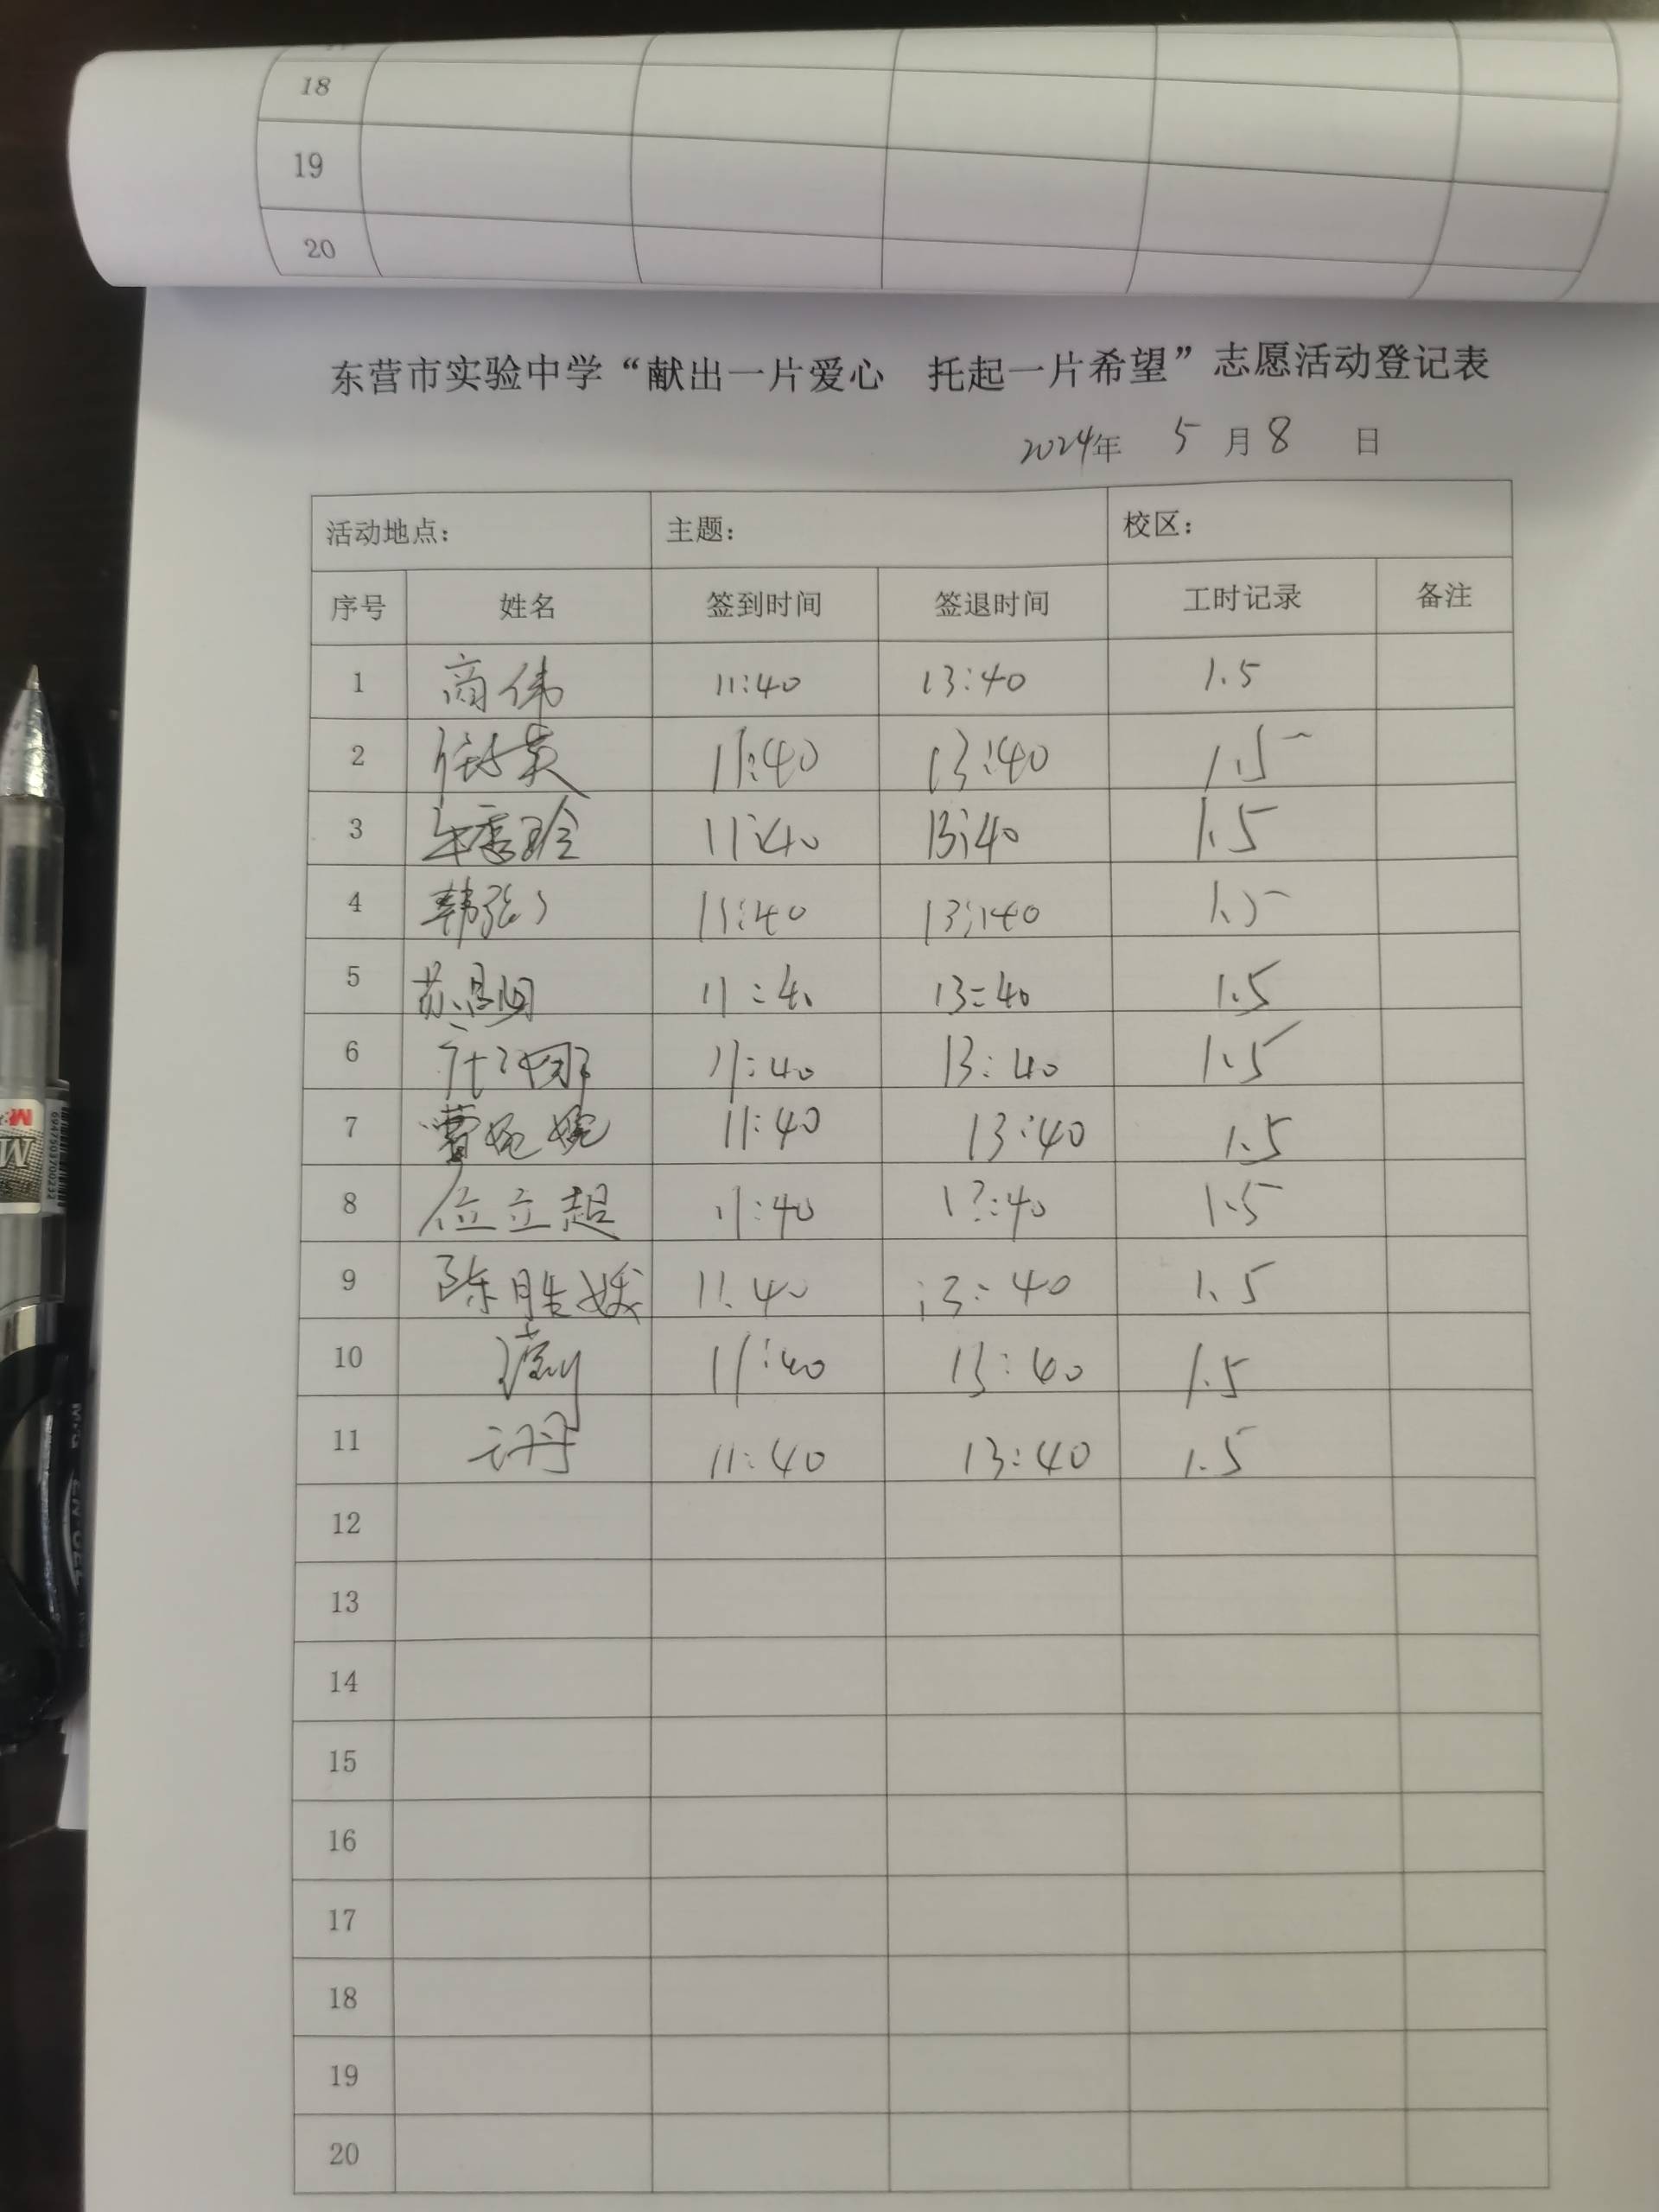 18
19
20
东营市实验中学“献出一片爱心 托起一片希望”志愿活动登记表
2024年 5 月 8 日
活动地点： 主题： 校区：
序号 姓名 签到时间 签退时间 工时记录 备注
1 商伟 11:40 13:40 1.5
2 11:40 13:40 1.5
3 11:40 13:40 1.5
4 11:40 13:40 1.5
5 11:40 13:40 1.5
6 11:40 13:40 1.5
7 11:40 13:40 1.5
8 位立超 11:40 13:40 1.5
9 陈胜媛 11:40 13:40 1.5
10 11:40 13:40 1.5
11 许丹 11:40 13:40 1.5
12
13
14
15
16
17
18
19
20
6947503700232